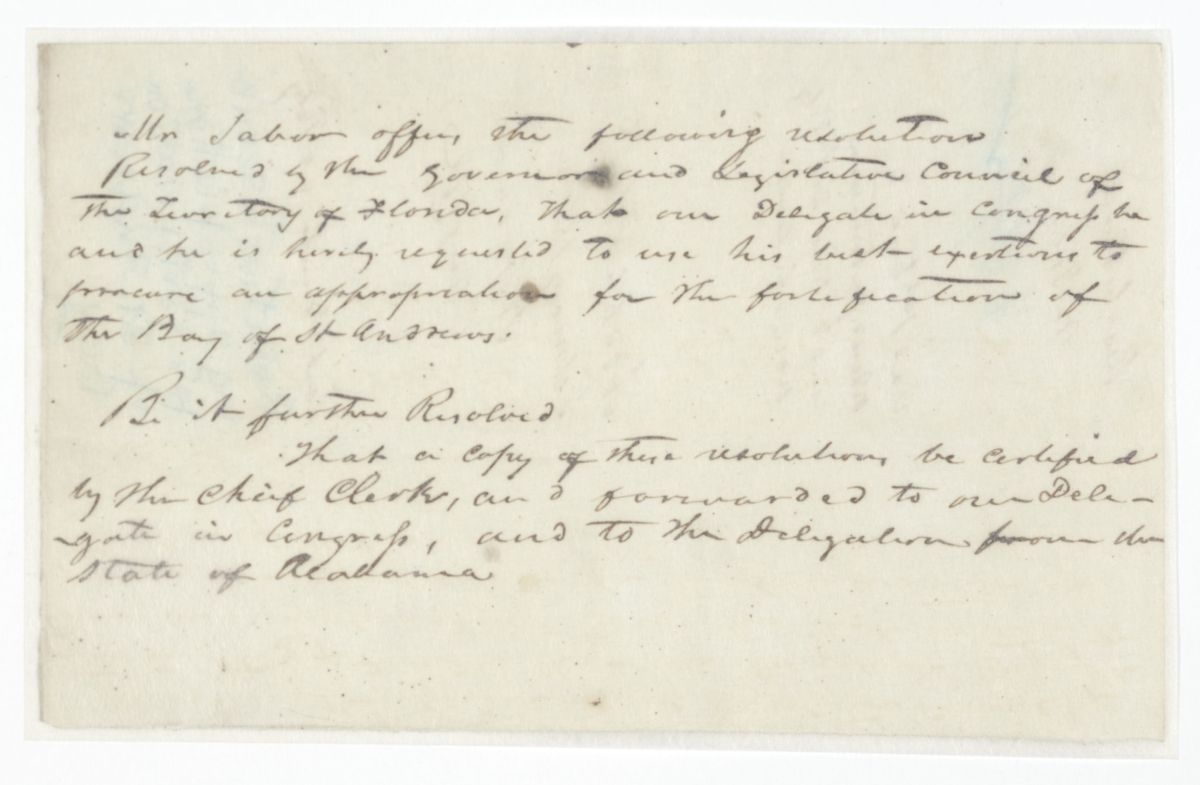 Mr Tabor offers the following resolution
Resolved by the Governor and Legislative Council of
the Territory of Florida, that our Delegate in Congress be
and he is hereby requested to use his best exertions to
procure an appropriation for the fortification of
the Bay of St Andrews.
Be it further Resolved
That a copy of these resolutions be certified
by the chief Clerk, and forwarded to our Dele-
gate in Congress, and to the Delegation from the
State of Alabama